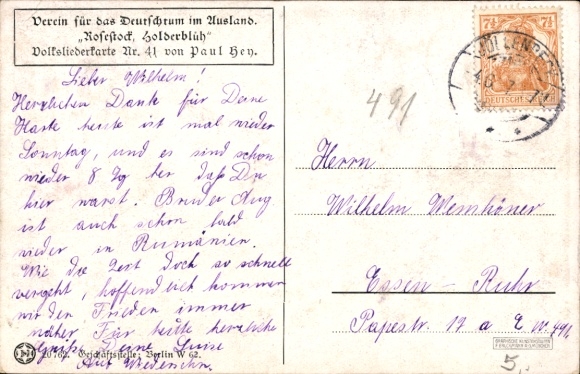 Verein für das Deutschtum im Ausland.
„Rosestock, Holderblüh"
Volksliederkarte Nr. 41 von Paul Hey.
Lieber Wilhelm!
Herzlichen Dank für Deine
Karte heute ist mal wieder
Sonntag, und es sind schon
wieder 8 Tg her daß Du
hier warst. Bruder Aug
ist auch schon bald
wieder in Rumänien.
Wie die Zeit doch so schnell
vergeht, hoffendlich kommen
wir den Frieden immer
näher. Für heute herzliche
Grüße Deine Luise
Auf Wiedersehn.
20762. Geschäftsstelle: Berlin W 62.
7½ 7½
DEUTSCHES
491
Herrn
Wilhelm Wemhöner
Essen - Ruhr
Papestr. 19 a E W. 491
5,-